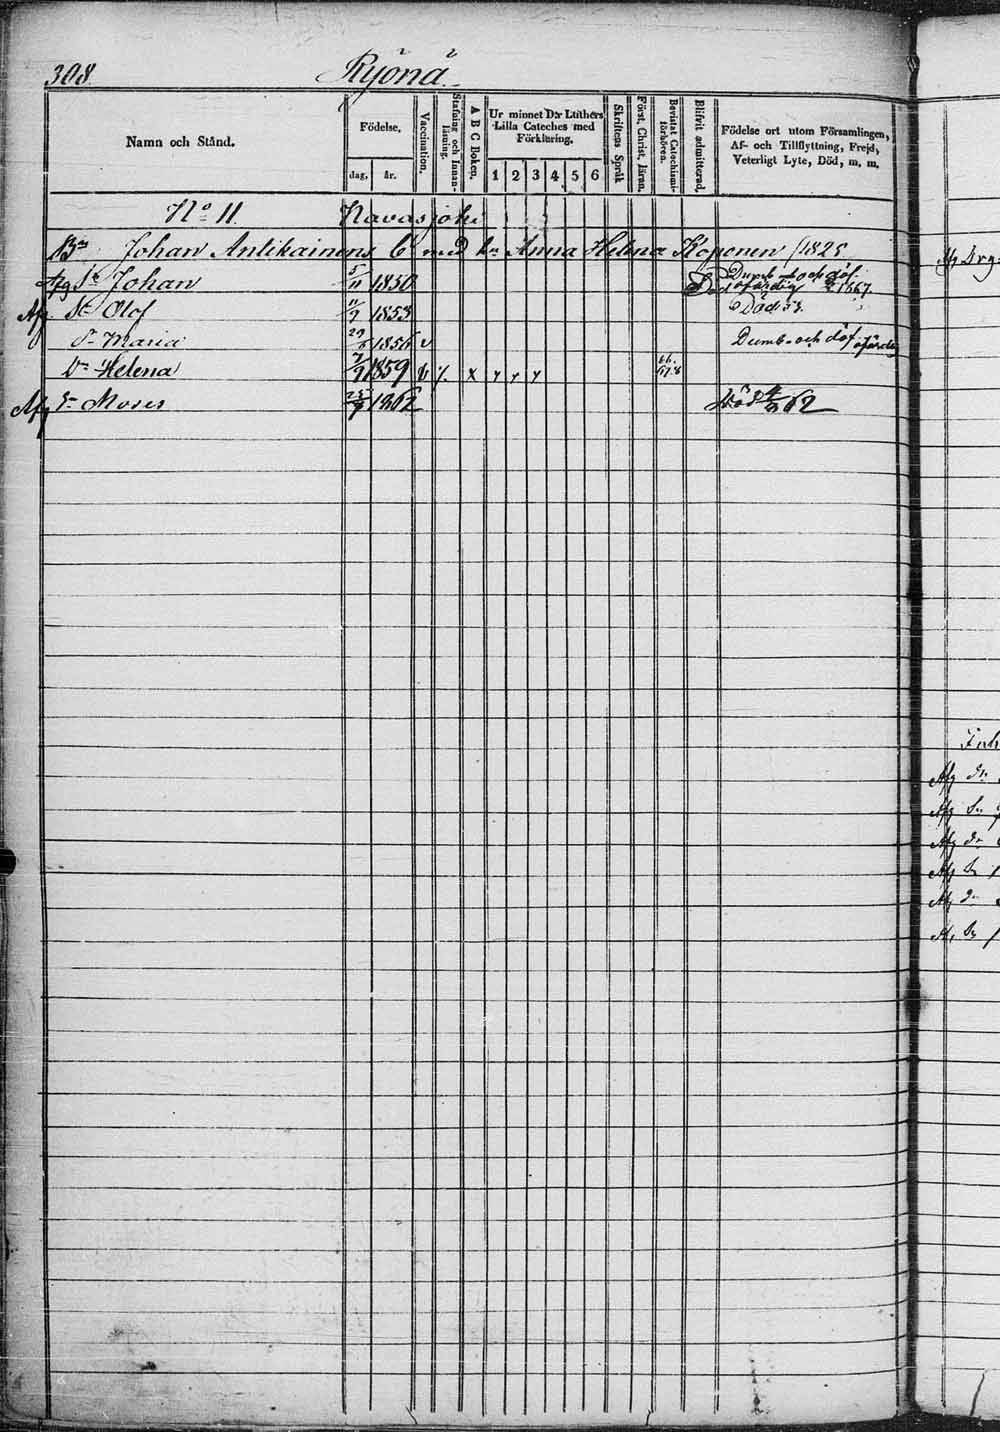 308 Ryönä
Namn och Stånd.
Födelse,
dag, år.
Vaccination.
Stafning och Innanläsning.
A B C Boken.
Ur minnet D:r Luthers Lilla Cateches med Förklaring.
1 2 3 4 5 6
Skriftens Språk
Först. Christ. läran.
Bevistat Catechismiförhören.
Blifvit admitterad.
Födelse ort utom Församlingen, Af- och Tillflyttning, Frejd, Veterligt Lyte, Död, m. m.
No 11. Havasjoki
Johan Antikainens B med hu Anna Helena Koponen 1825
Sn Johan 5/11 1850 Dumb och döf ofärdig 1867.
Afg Sn Olof 11/9 1853 Död 53.
Dr Maria 29/5 1856 v Dumb och döf ofärdig
Dr Helena 1859 v x 66. 67.8
Afg Sn Moses 1862 Död 62